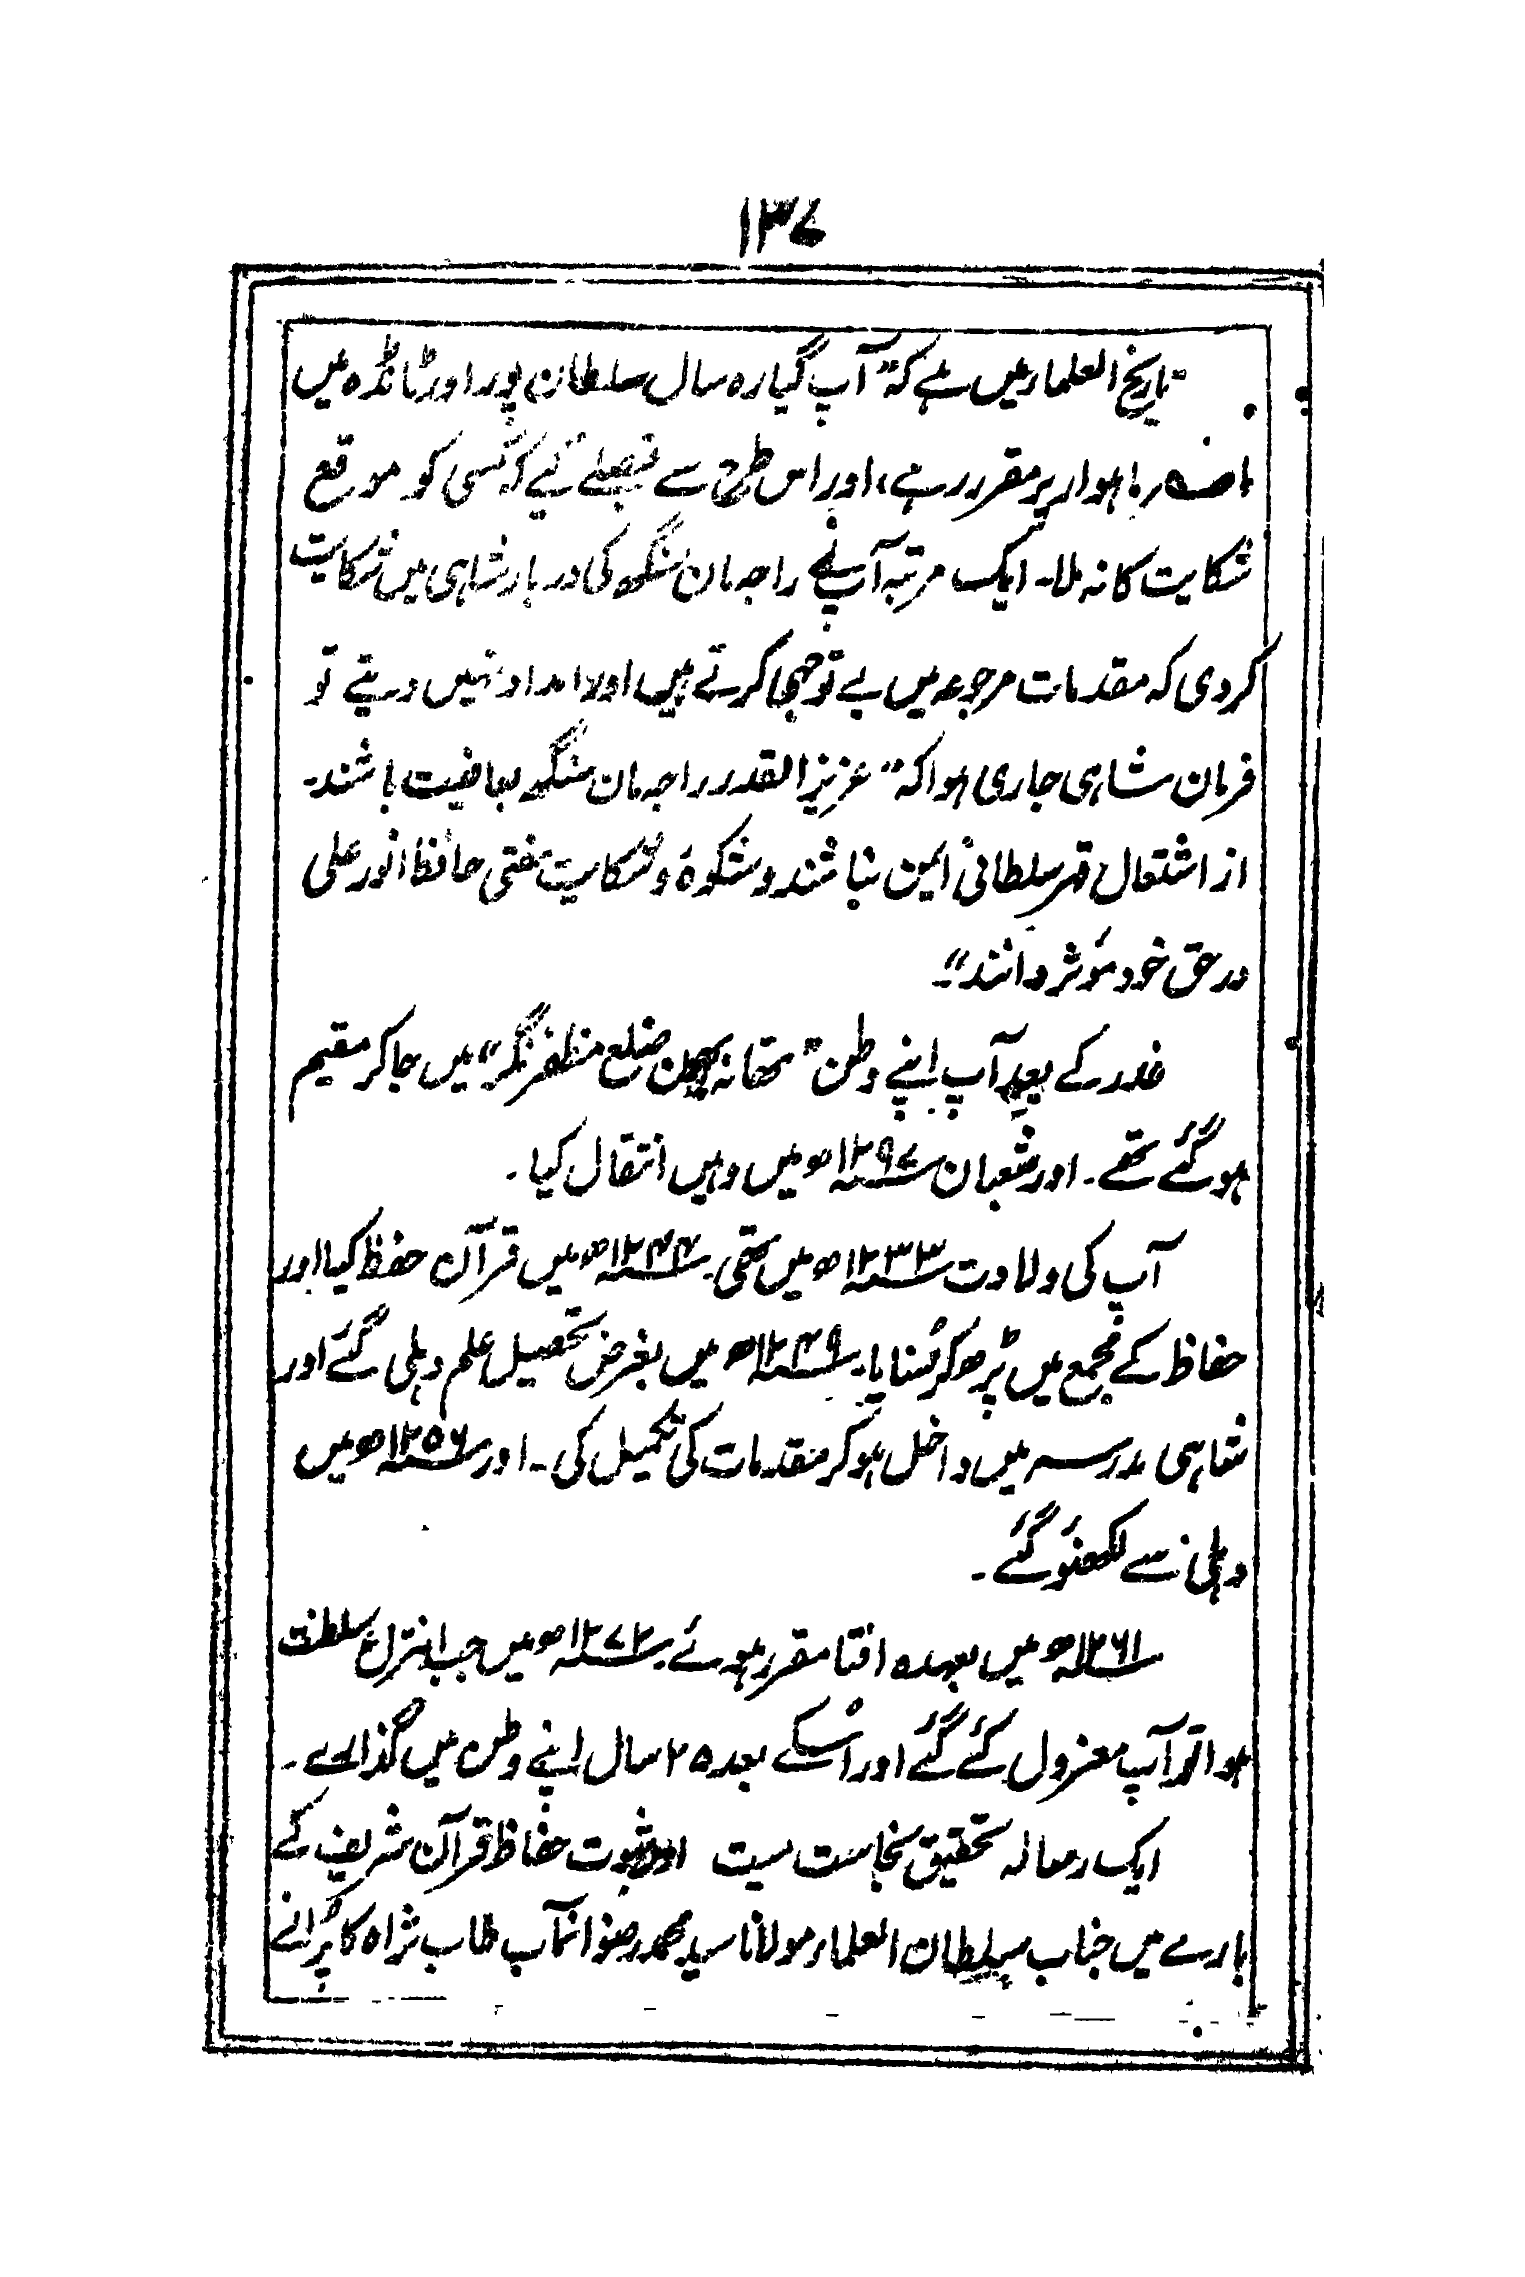 ۱۳۷
تاریخ العلماء میں ہے کہ "آپ گیارہ سال سلطان پور اور ٹانڈہ میں
ماہوار پر مقرر رہے، اور اس طرح سے فیصلے کیے کہ کسی کو موقع
شکایت کا نہ ملا۔ ایک مرتبہ آپ نے راجہ مان سنگھ کی دربار شاہی میں شکایت
کردی کہ مقدمات مرجوعہ میں بے توجہی کرتے ہیں اور امداد نہیں دیتے تو
فرمان شاہی جاری ہوا کہ "عزیز القدر راجہ مان سنگھ بعافیت باشند۔
از اشتعال قہر سلطانی ایمن نباشند و شکوۂ و شکایت مفتی حافظ انور علی
در حق خود مؤثر دانند"۔
غدر کے بعد آپ اپنے وطن "تھانہ بھون ضلع مظفر نگر" میں جاکر مقیم
ہوگئے تھے۔ اور شعبان ۱۲۹۷ھ میں وہیں انتقال کیا۔
آپ کی ولادت ۱۲۳۳ھ میں تھی۔ ۱۲۴۴ھ میں قرآن حفظ کیا اور
حفاظ کے مجمع میں پڑھ کر سُنایا۔ ۱۲۴۹ھ میں بغرض تحصیل علم دہلی گئے اور
شاہی مدرسہ میں داخل ہوکر مقدمات کی تکمیل کی۔ اور ۱۲۵۶ھ میں
دہلی سے لکھنؤ گئے۔
۱۲۶۱ھ میں بعہدہ افتا مقرر ہوئے۔ ۱۲۷۲ھ میں جب انتزاع سلطنت
ہوا تو آپ معزول کئے گئے اور اُسکے بعد ۲۵ سال اپنے وطن میں گذارے۔
ایک رسالہ تحقیق نجاست میت اور ثبوت حفاظ قرآن شریف کے
بارے میں جناب سلطان العلماء مولانا سید محمد رضوانمآب طاب ثراہ کا پُرانے